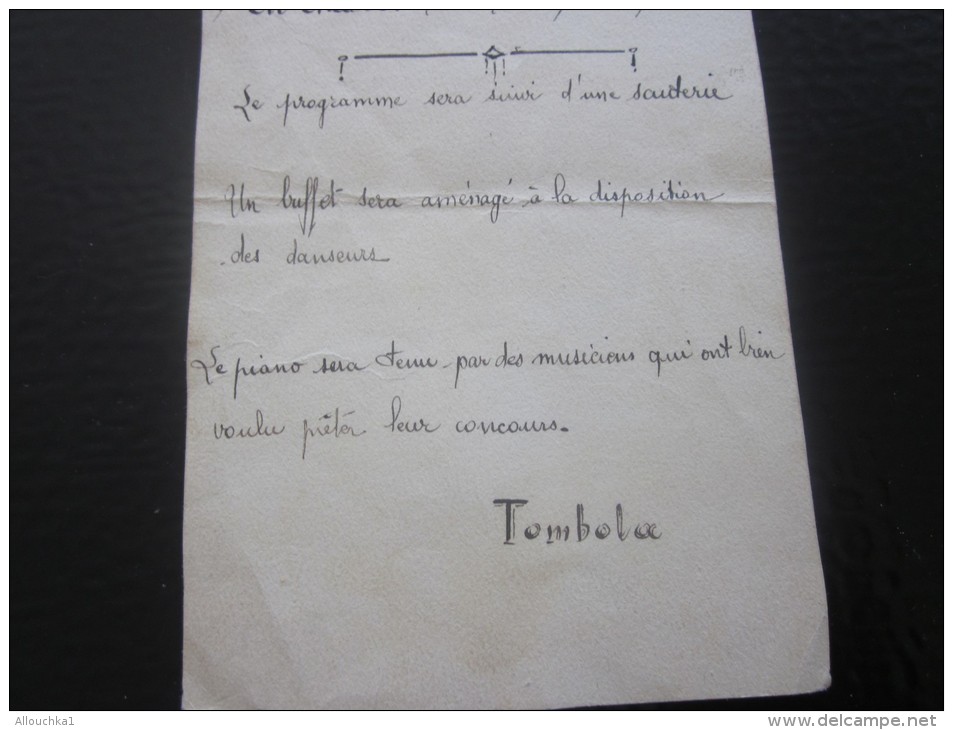 Le programme sera suivi d'une sauterie
Un buffet sera aménagé à la disposition
des danseurs
Le piano sera tenu par des musiciens qui ont bien
voulu prêter leur concours.
Tombola
Allouchka1
delcampe.net